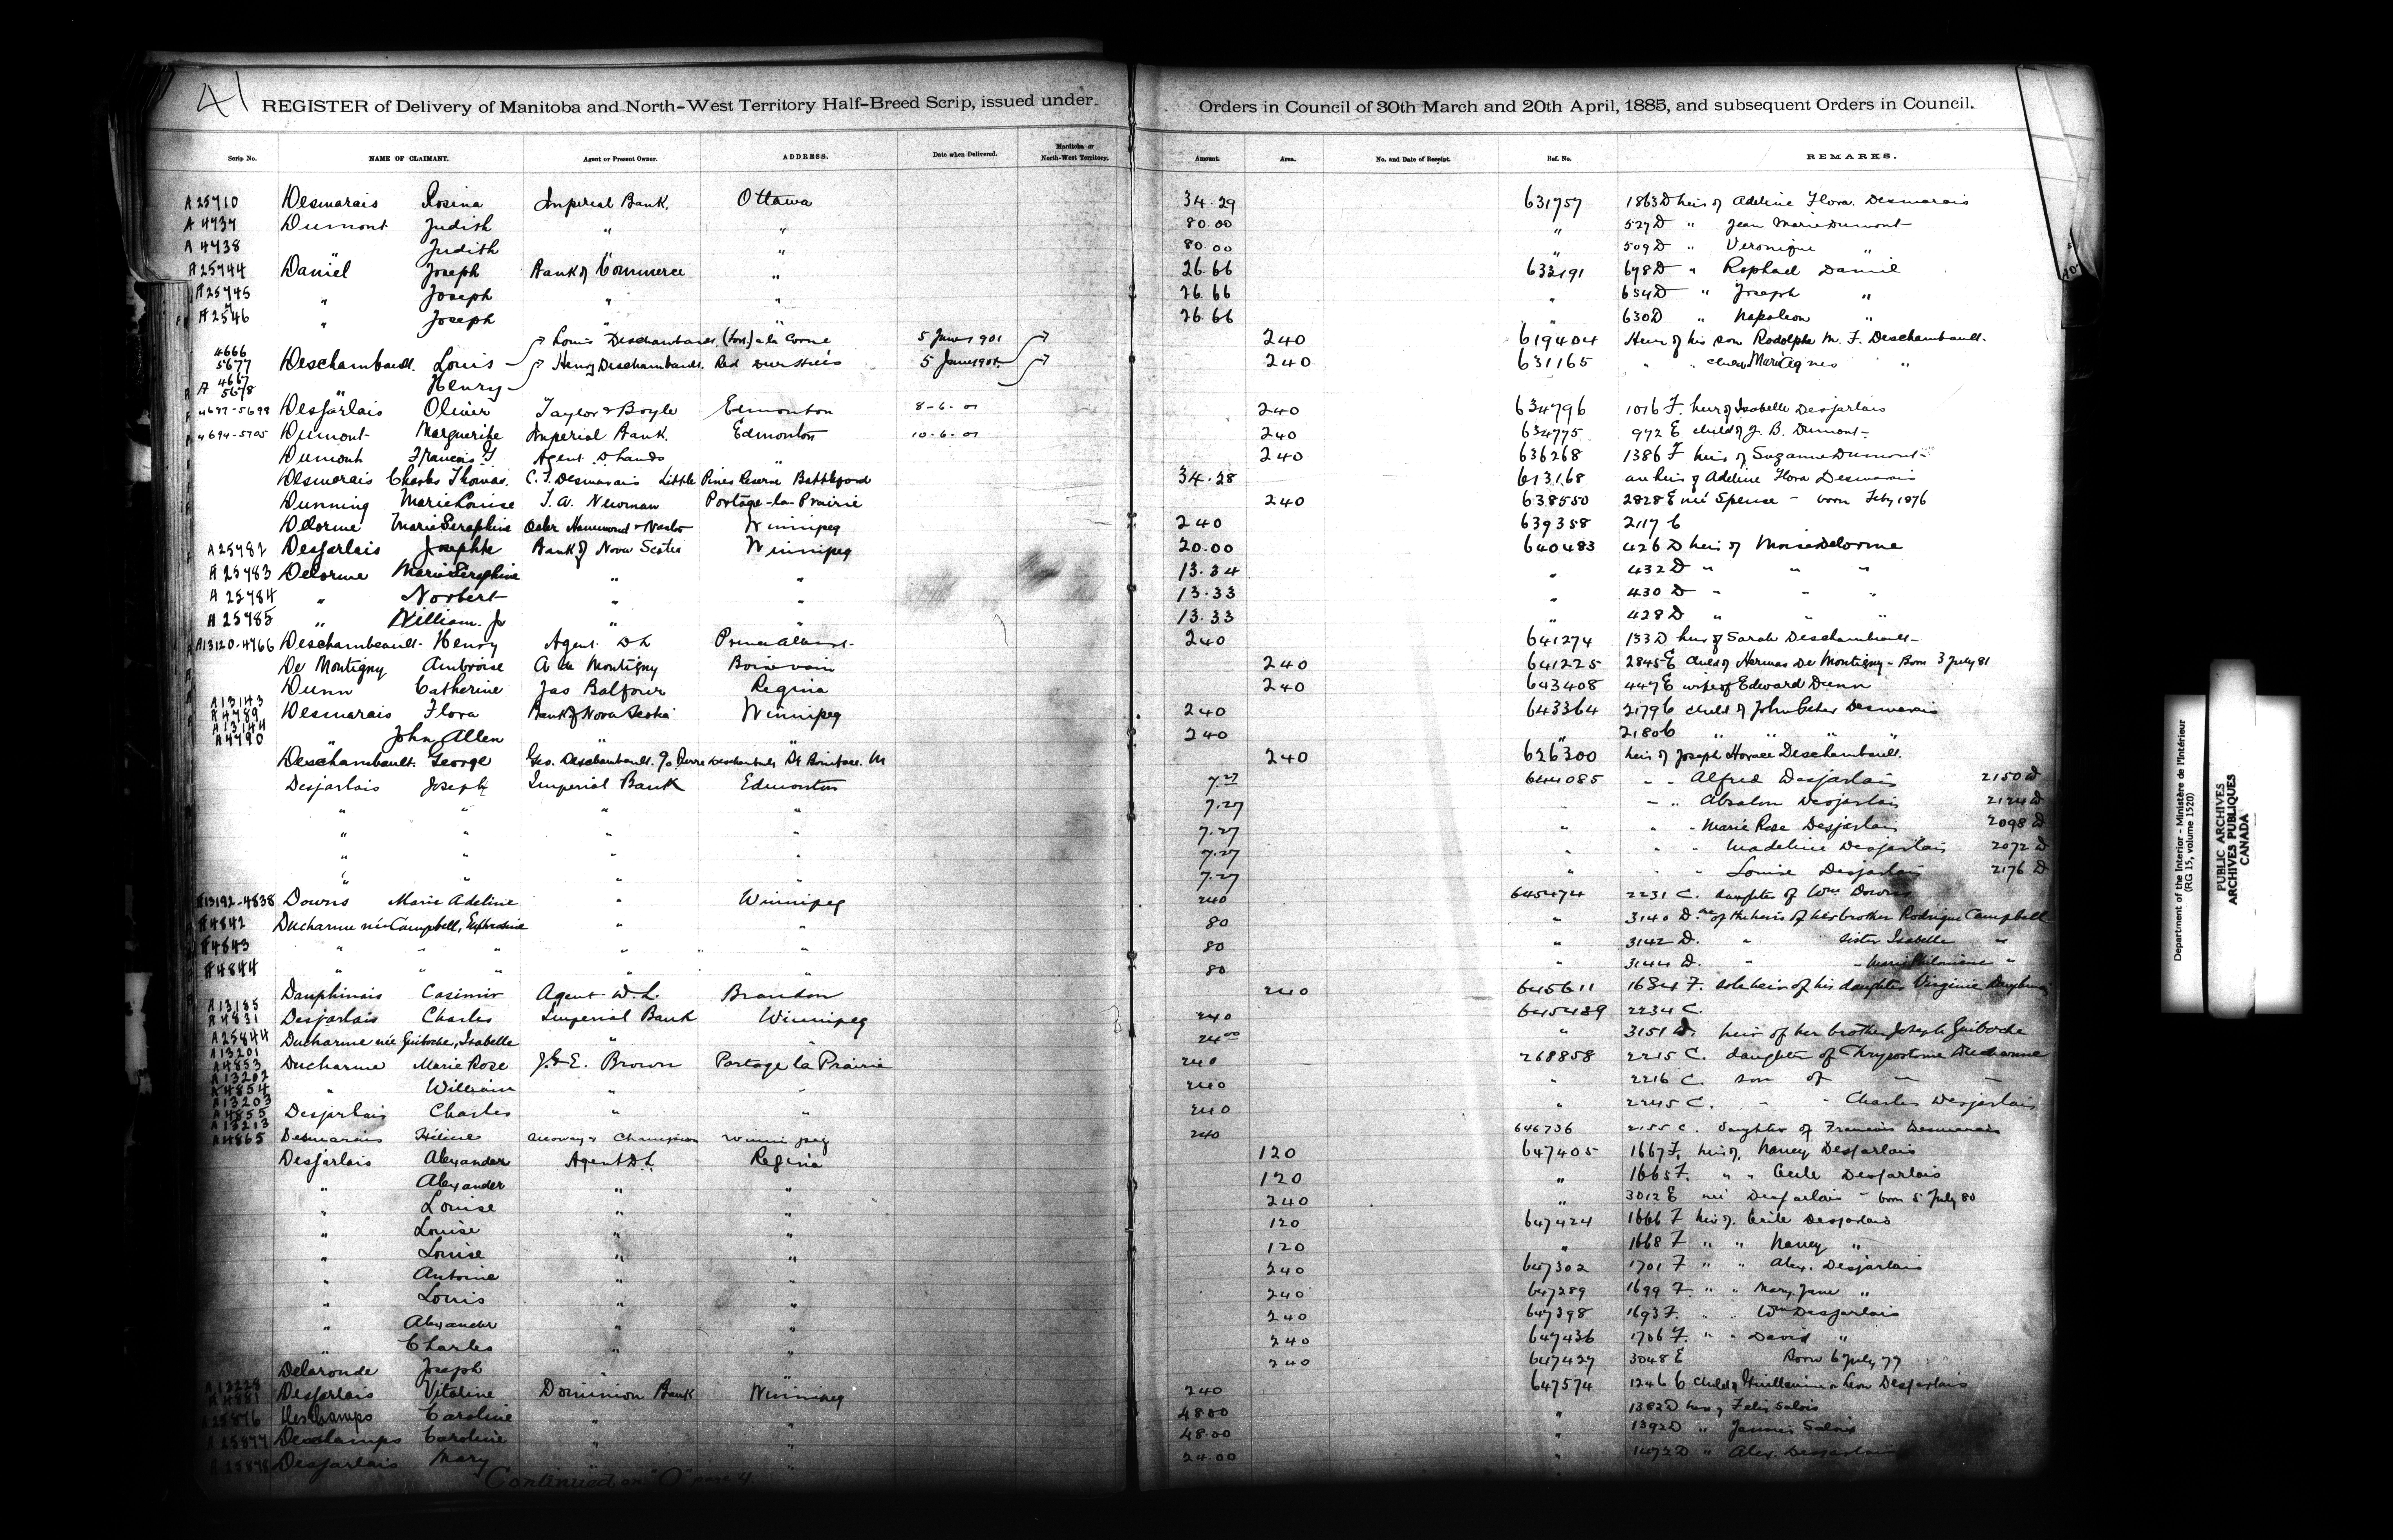 41
REGISTER of Delivery of Manitoba and North-West Territory Half-Breed Scrip, issued under Orders in Council of 30th March and 20th April, 1885, and subsequent Orders in Council.
Scrip No. NAME OF CLAIMANT. Agent or Present Owner. ADDRESS. Date when Delivered. Manitoba or North-West Territory. Amount. Area. No. and Date of Receipt. Ref. No. REMARKS.
A 25710 Desmarais Rosina Imperial Bank. Ottawa 34.29 631757 1863 D heir of Adeline Flora Desmarais
A 4737 Dumont Judith " " 80.00 " 527 D " Jean Marie Dumont
A 4738 " Judith " " 80.00 " 509 D " Veronique "
A 25744 Daniel Joseph Bank of Commerce " 26.66 633191 678 D " Raphael Daniel
A 25745 " Joseph " " 26.66 " 654 D " Joseph "
A 2546 " Joseph " " 26.66 " 630 D " Napoleon "
4666 5677 Deschambault. Louis Louis Deschambault, (Fort) a la Corne 5 June 1901 240 619404 Heir of his son Rodolphe M. F. Deschambault.
A 4667 5678 " Henry Henry Deschambault. 5 June 1901 240 631165 " " Marie Agnes "
4687-5698 Desjarlais Olivier Taylor & Boyle Edmonton 8-6-01 240 634796 1016 F. heir of Isabelle Desjarlais
4694-5705 Dumont Marguerite Imperial Bank. Edmonton 10-6-01 240 634775 972 E child of J. B. Dumont
Dumont Francois G Agent D Lands " 240 636268 1386 F heir of Suzanne Dumont
Desmarais Charles Thomas. C. T. Desmarais Little Pines Reserve Battleford 34.28 613168 an heir of Adeline Flora Desmarais
Dunning Marie Louise T. A. Newman Portage-la-Prairie 240 638550 2828 E née Spence - born Feby 1876
Delorme Marie Seraphine Osler Hammond & Nanton Winnipeg 240 639358 2117 C
A 25782 Desjarlais Josephte Bank of Nova Scotia Winnipeg 20.00 640483 426 D heir of Moise Delorme
A 25783 Delorme Marie Seraphine " " 13.34 " 432 D " " "
A 25784 " Norbert " " 13.33 " 430 D " " "
A 25785 " William Jr " " 13.33 " 428 D " " "
A13120-4766 Deschambault Henry Agent DL Prince Albert 240 641274 133 D heir of Sarah Deschambault
De Montigny Ambroise A de Montigny Boissevain 240 641225 2845 E child of Hermas De Montigny - Born 3 July 81
Dunn Catherine Jas Balfour Regina 240 643408 447 E wife of Edward Dunn
A13143 A4789 Desmarais Flora Bank of Nova Scotia Winnipeg 240 643364 2179 C child of John Peter Desmarais
A13144 A4790 " John Allen " " 240 " 2180 C " " " "
Deschambault George Geo. Deschambault. c/o Pierre Deschambault St Boniface. M 240 626300 heir of Joseph Horace Deschambault.
Desjarlais Joseph Imperial Bank Edmonton 7.27 644085 " " Alfred Desjarlais 2150 D
" " " " 7.27 " " " Absalon Desjarlais 2124 D
" " " " 7.27 " " " Marie Rose Desjarlais 2098 D
" " " " 7.27 " " " Madeline Desjarlais 2072 D
" " " " 7.27 " " " Louise Desjarlais 2176 D
A13192-4838 Downs Marie Adeline " Winnipeg 240 645474 2231 C. daughter of Wm Downs
A4842 Ducharme née Campbell, Euphrosine " " 80 " 3140 D. one of the heirs of her brother Rodrigue Campbell
A4843 " " " " " 80 " 3142 D. " sister Isabelle "
A4844 " " " " " 80 " 3144 D. " " Marie Philomene "
Dauphinais Casimir Agent D.L. Brandon 240 645611 1684 F. sole heir of his daughter Virginie Dauphinais
A13185 A4831 Desjarlais Charles Imperial Bank Winnipeg 240 645489 2234 C.
A25844 Ducharme née Guiboche, Isabelle " " 24.00 " 3151 D. heir of her brother Joseph Guiboche
A13201 A4853 Ducharme Marie Rose J. & E. Brown Portage la Prairie 240 268858 2215 C. daughter of Chrysostome Ducharme
A13202 A4854 " William " " 240 " 2216 C. son of " "
A13203 A4855 Desjarlais Charles " " 240 " 2245 C. " " Charles Desjarlais
A13213 A4865 Desmarais Hélène Alloway & Champion Winnipeg 240 646736 2155 C. daughter of Francois Desmarais
Desjarlais Alexander Agent D.L. Regina 120 647405 1667 F. heir of Nancy Desjarlais
" Alexander " " 120 " 1665 F. " " Cecile Desjarlais
" Louise " " 240 " 3012 E née Desjarlais - born 5 July 80
" Louise " " 120 647424 1666 F heir of Cecile Desjarlais
" Louise " " 120 " 1668 F " " Nancy "
" Antoine " " 240 647302 1701 F " " Alex. Desjarlais
" Louis " " 240 647289 1699 F " " Mary Jane "
" Alexander " " 240 647398 1693 F. " " Wm Desjarlais
" Charles " " 240 647436 1706 F. " " David "
Delaronde Joseph " " 240 647427 3048 E Born 6 July 77
Desjarlais Vitaline Dominion Bank Winnipeg 240 647574 1246 C child of Guillaume or Leon Desjarlais
Deschamps Caroline " " 48.00 " 1382 D heir of Felix Salois
Deschamps Caroline " " 48.00 " 1392 D " Salois
Desjarlais Mary " " 24.00 " 1472 D " Alex. Desjarlais
Continued on "O" page 4
Department of the Interior - Ministère de l'Intérieur
(RG 15, volume 1520)
PUBLIC ARCHIVES
ARCHIVES PUBLIQUES
CANADA